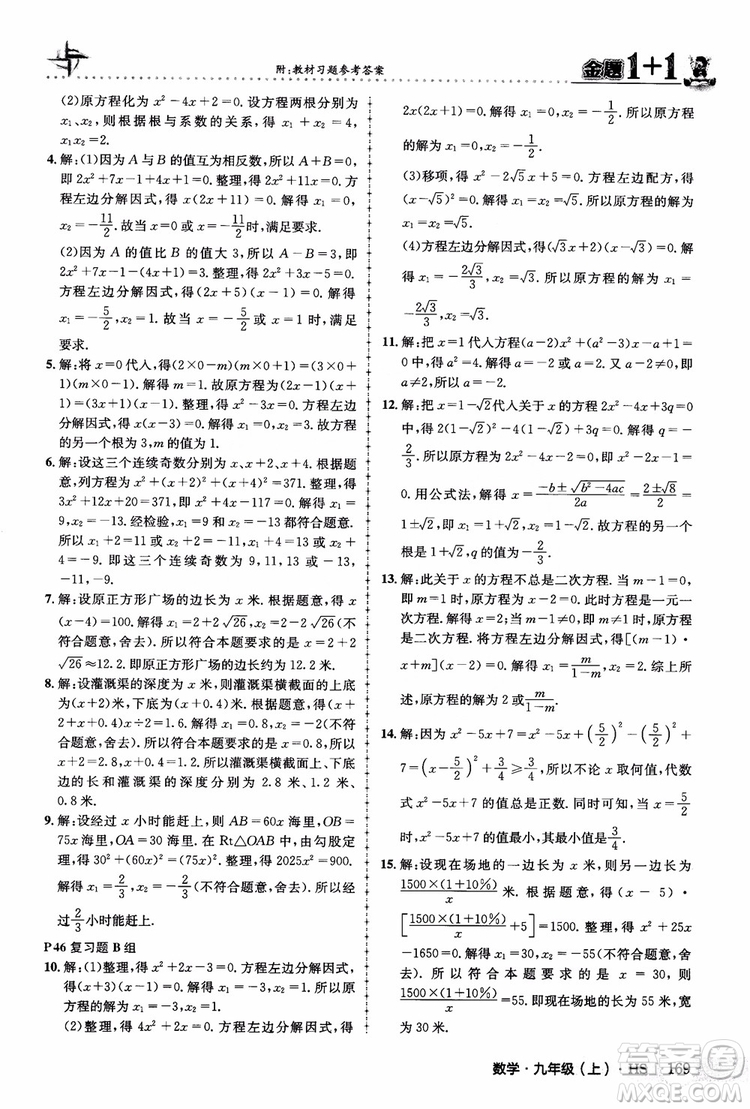 附:教材习题参考答案
金题1+1
(2)原方程化为 x²-4x+2=0. 设方程两根分别为
x₁、x₂,则根据根与系数的关系,得 x₁+x₂=4,
x₁x₂=2.
4. 解:(1)因为 A 与 B 的值互为相反数,所以 A+B=0,
即 2x²+7x-1+4x+1=0. 整理,得 2x²+11x=0.
方程左边分解因式,得 x(2x+11)=0. 解得 x₁=0,
x₂=-11/2. 故当 x=0 或 x=-11/2时,满足要求.
(2)因为 A 的值比 B 的值大 3,所以 A-B=3,即
2x²+7x-1-(4x+1)=3. 整理,得 2x²+3x-5=0.
方程左边分解因式,得(2x+5)(x-1)=0. 解得 x₁
=-5/2,x₂=1. 故当 x=-5/2或 x=1 时,满足
要求.
5. 解:将 x=0 代入,得(2×0-m)(m×0+1)=(3×0
+1)(m×0-1). 解得 m=1. 故原方程为(2x-1)(x+1)
=(3x+1)(x-1). 整理,得 x²-3x=0. 方程左边分
解因式,得 x(x-3)=0. 解得 x₁=0,x₂=3. 故方程
的另一个根为 3,m 的值为 1.
6. 解:设这三个连续奇数分别为 x-2,x,x+2. 根据题
意,列方程为(x-2)²+x²+(x+2)²=371. 整理,得
3x²+12x+20=371,即 x²+4x-117=0. 解得 x₁=
9,x₂=-13. 经检验,x₁,x₂都是奇数,且都符合题意.
所以,即这三个连续奇数为 9,11,13 或-13,
-11,-9.
7. 解:设原正方形广场的边长为 x 米. 根据题意,得
x(x-4)=100. 解得 x₁=2+2√26,x₂=2-2√26(不
符合题意,舍去). 所以符合本题要求的 x=2+2
√26≈12.2. 即原正方形广场的边长约为 12.2 米.
8. 解:设灌溉渠的深度为 x 米,则灌溉渠横截面的上底
为(x+2)米,下底为(x+0.4)米. 根据题意,得(x+
2+x+0.4)x÷2=1.6. 解得 x₁=0.8,x₂=-2(不符
合题意,舍去). 所以灌溉渠横截面下
底边的长和灌溉渠的深度分别为 2.8 米、1.2 米和
0.8 米.
9. 解:设经过 x 小时能赶上,则 OB=60x 海里,AB=
75x 海里,OA=30 海里. 在 Rt△OAB 中,由勾股定
理,得 30²+(60x)²=(75x)². 整理,得 2025x²=900.
解得 x₁=2/3,x₂=-2/3(不符合题意,舍去). 所以经
过2/3小时能赶上.
P46 复习题 B 组
10. 解:(1)整理,得 x²+x-2=0. 解得 x₁=1,x₂=-2. 所以
原方程的解为 x₁=1,x₂=-2.
(2)整理,得 4x²+2x=0. 方程左边分解因式,得
2x(2x+1)=0. 解得 x₁=0,x₂=-1/2. 所以原方程
的解为 x₁=0,x₂=-1/2.
(3)移项,得 x²-2√5x=-2. 方程左边配方,得
(x-√5)²=3. 解得 x₁=√5+√3,x₂=√5-√3. 所以
原方程的解为 x₁=√5+√3,x₂=√5-√3.
(4)方程左边分解因式,得(√3x+2)(x-√2)=0. 解
得 x₁=√2,x₂=-2√3/3. 所以原方程的解为 x₁=√2,x₂
=-2√3/3.
11. 解:把 x=1 代入方程(a+2)x²-2x-a²+a+4=
0 中,得 a²=4. 解得 a=±2. 又因为 a+2≠0,即
a≠-2,所以 a=2.
12. 解:把 x=1-√2代入关于 x 的方程 2x²-4x+3q=
0,得 2(1-√2)²-4(1-√2)+3q=0. 解得 q=-
2/3. 将 q=-2/3代入原方程并整理,得 x²-2x-1=
0. 用公式法,解得 x=(-b±√(b²-4ac))/2a=(2±√8)/2=1±√2.
故方程的另一根为 1+√2,q 的值为-2/3.
13. 解:此关于 x 的方程不总是二次方程. 当 m=1 时,
二次项系数 m-1=0,此时原方程为关于 x 的一元一
次方程. 当 m-1≠0,即 m≠1 时,原方程为一元二
次方程. 将方程左边分解因式,得[(m-1)x+
m](x-2)=0. 解得 x₁=m/(1-m),x₂=2. 综上所
述,原方程的解为 x=2 或 x=m/(1-m).
14. 解:因为 x²-5x+7=x²-5x+(5/2)²-(5/2)²
+7=(x-5/2)²+3/4≥3/4,所以不论 x 取何值,代数
式 x²-5x+7 的值总大于 0. 并且可以看出当 x=5/2
时,代数式 x²-5x+7 的值最小,其最小值是3/4.
15. 解:设现在场地的一边长为 x 米,则另一边长为
1500×(1+10%)/x米. 根据题意,得(x-5)·
[1500×(1+10%)/x-5]=1500. 整理,得 x²-25x
-1650=0. 解得 x₁=55,x₂=-30(不符合题意,舍
去). 所以符合本题要求的 x=30,
1500×(1+10%)/x=55. 即现在场地的长为 55 米,宽
为 30 米.
数学·九年级(上)·HS 169